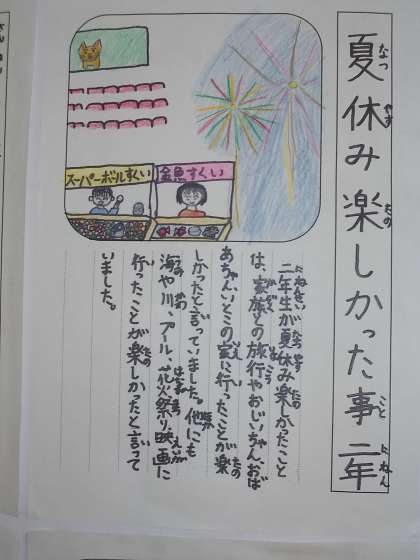 夏休み楽しかった事 二年
なつ やす たの こと に ねん
スーパーボールすくい
金魚すくい
二年生が夏休み楽しかったこと
は、家族との旅行やおじいちゃん、おば
あちゃん、いとこの家に行ったことが楽
しかったと言っていました。他にも
海や川、プール、花火、祭り、映画に
行ったことが楽しかったと言って
いました。